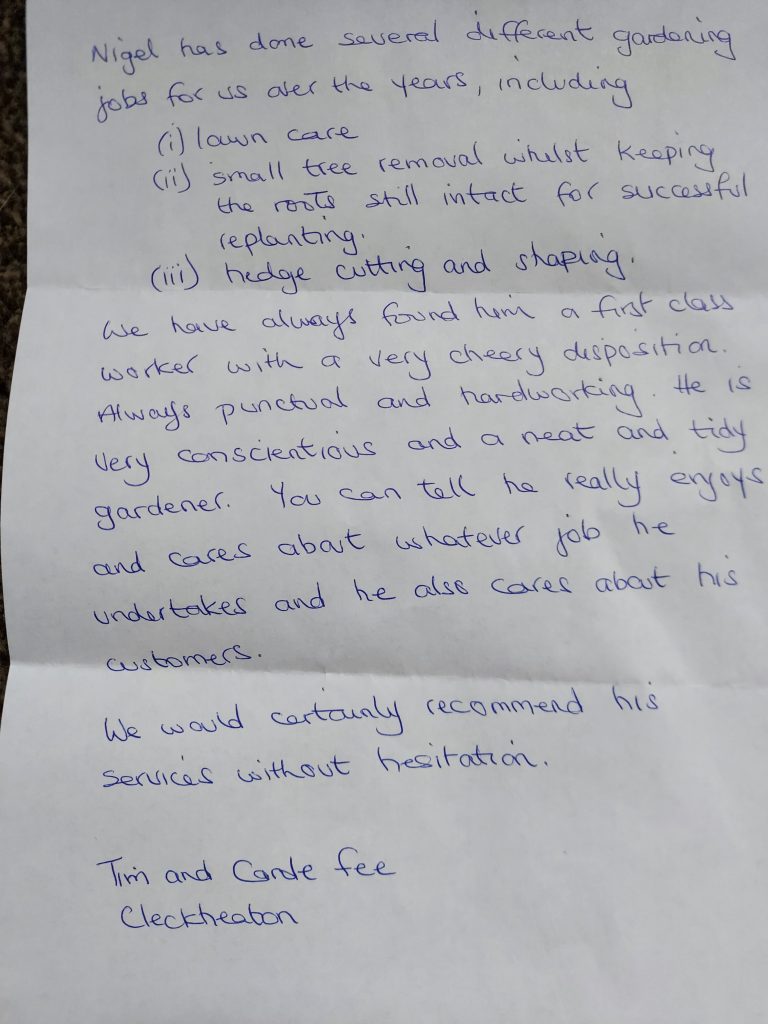 Nigel has done several different gardening
jobs for us over the years, including
(i) lawn care
(ii) small tree removal whilst keeping
the roots still intact for successful
replanting.
(iii) hedge cutting and shaping.
We have always found him a first class
worker with a very cheery disposition.
Always punctual and hardworking. He is
very conscientious and a neat and tidy
gardener. You can tell he really enjoys
and cares about whatever job he
undertakes and he also cares about his
customers.
We would certainly recommend his
services without hesitation.
Tim and Carole Fee
Cleckheaton